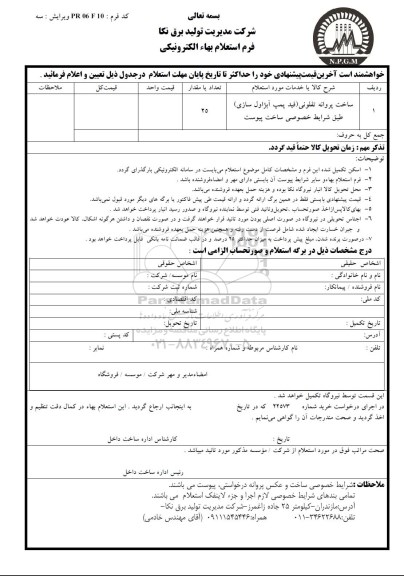 بسمه تعالی
کد فرم : PR 06 F 10 ویرایش : سه
شرکت مدیریت تولید برق نکا
فرم استعلام بهاء الکترونیکی
N.P.G.M
خواهشمند است آخرین قیمت پیشنهادی خود را حداکثر تا تاریخ پایان مهلت استعلام درجدول ذیل تعیین و اعلام فرمائید .
ردیف شرح کالا یا خدمات مورد استعلام تعداد یا مقدار قیمت واحد قیمت کل ملاحظات
۱ ساخت پروانه تفلونی(فید پمپ آبزاول سازی) ۲۵
طبق شرایط خصوصی ساخت پیوست
جمع کل به حروف:
تذکر مهم: زمان تحویل کالا حتماً قید گردد.
توضیحات:
۱- اسکن تکمیل شده این فرم و مشخصات کامل موضوع استعلام می‌بایست در سامانه الکترونیکی بارگذاری گردد.
۲- فرم استعلام بهاء و سایر شرایط پیوست آن بایستی دارای مهر و امضاء فروشنده باشد .
۳- محل تحویل کالا انبار نیروگاه نکا بوده و هزینه حمل بعهده فروشنده می‌باشد.
۴- قیمت پیشنهادی بایستی فقط در همین برگ ارائه گردد و ارائه قیمت طی پیش فاکتور یا برگه های دیگر مورد قبول نمی‌باشد.
۵- بهای کالا پس از اخذ صورتحساب ، تحویل و تائید فنی توسط نماینده نیروگاه و صدور رسید انبار پرداخت خواهد شد .
۶- اجناس تحویلی در نیروگاه در صورت اصلی بودن مورد تائید قرار خواهند گرفت و در صورت نقصان و داشتن هرگونه اشکال، کالا عودت خواهد شد
و جبران خسارت ایجاد شده شامل فرصت از دست رفته و همچنین هزینه حمل بعهده فروشنده می‌باشد .
۷- درصورت برنده شدن، مبلغ پیش پرداخت به میزان حداکثر ۲۵ درصد و در قالب ضمانت نامه بانکی قابل پرداخت خواهد بود .
درج مشخصات ذیل در برگه استعلام و صورتحساب الزامی است :
اشخاص حقیقی اشخاص حقوقی
نام و نام خانوادگی : نام موسسه / شرکت :
نام فروشنده / پیمانکار: شماره ثبت شرکت :
کد ملی: کد اقتصادی
شناسه ملی:
تاریخ تکمیل : تاریخ تحویل:
آدرس: کد پستی :
تلفن : نام کارشناس مربوطه و شماره همراه نمابر :
امضاء مدیر و مهر شرکت / موسسه / فروشگاه
این قسمت توسط نیروگاه تکمیل خواهد شد .
در اجرای درخواست خرید شماره ۲۲۵۷۳ که در تاریخ به اینجانب ارجاع گردید . این استعلام بهاء در کمال دقت تنظیم و
اخذ گردید و صحت مندرجات آن را گواهی می‌نمایم .
تاریخ : کارشناس اداره ساخت داخل
صحت مراتب فوق در مورد استعلام از شرکت / مؤسسه مذکور مورد تائید میباشد .
رئیس اداره ساخت داخل
ملاحظات :شرایط خصوصی ساخت و عکس پروانه درخواستی، پیوست می باشند.
تمامی بندهای شرایط خصوصی لازم اجرا و جزء لاینفک استعلام می باشند.
آدرس:مازندران-کیلومتر ۲۵ جاده زاغمرز-شرکت مدیریت تولید برق نکا-
تلفن:۳۴۶۲۲۶۸۸-۰۱۱ همراه:۰۹۱۱۱۵۴۵۴۴۶ (آقای مهندس خادمی)
ParsNamadData
۰۲۱-۸۸۳۴۹۶۷۰